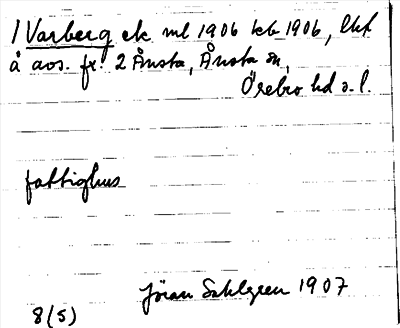 1 Varberg ek. ml 1906 kb 1906, lht
å avs. fr. 2 Ånsta, Ånsta sn,
Örebro hd o. l.
fattighus
Jöran Sahlgren 1907
8(5)